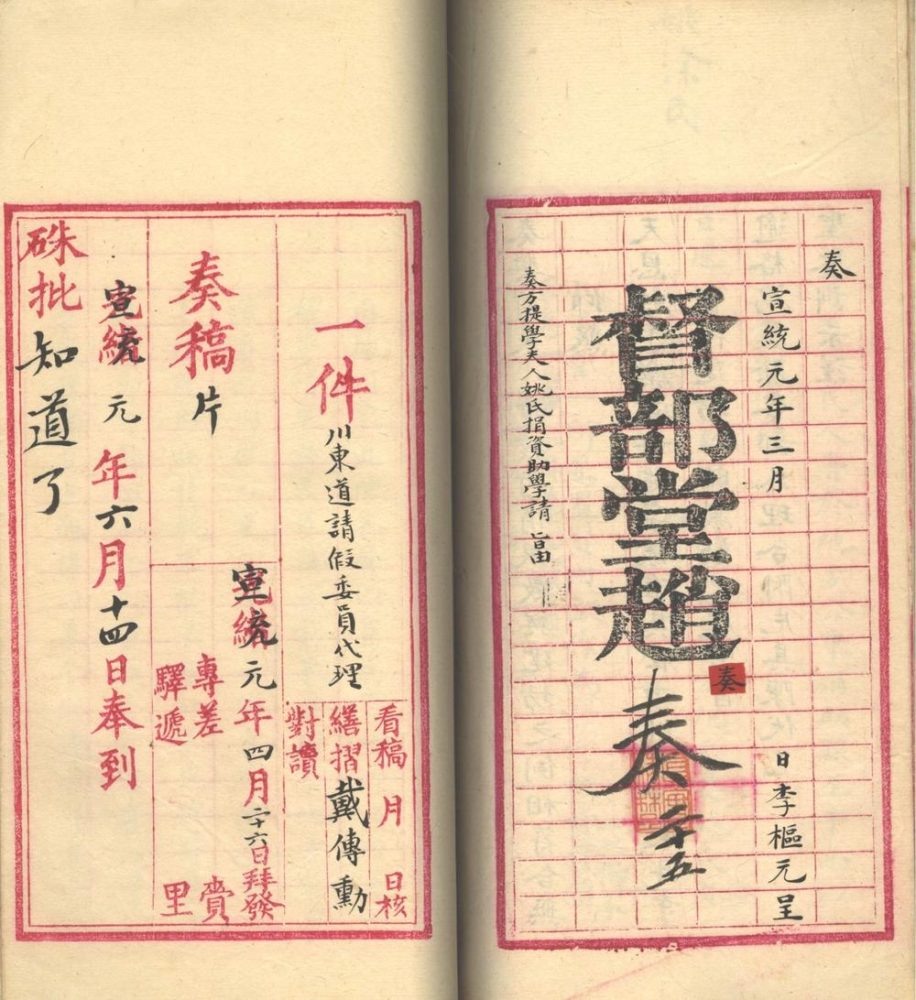 奏
宣統元年三月 日李樞元呈
督部堂趙
奏
奏 二十五
奏方提學夫人姚氏捐資助學請 由
一件川東道請假委員代理
看稿 月 日核
繕摺戴傳勳
對讀
奏稿片
宣統元年四月二十六日拜發
專差 賫
驛遞 里
宣統元年六月十四日奉到
硃批知道了